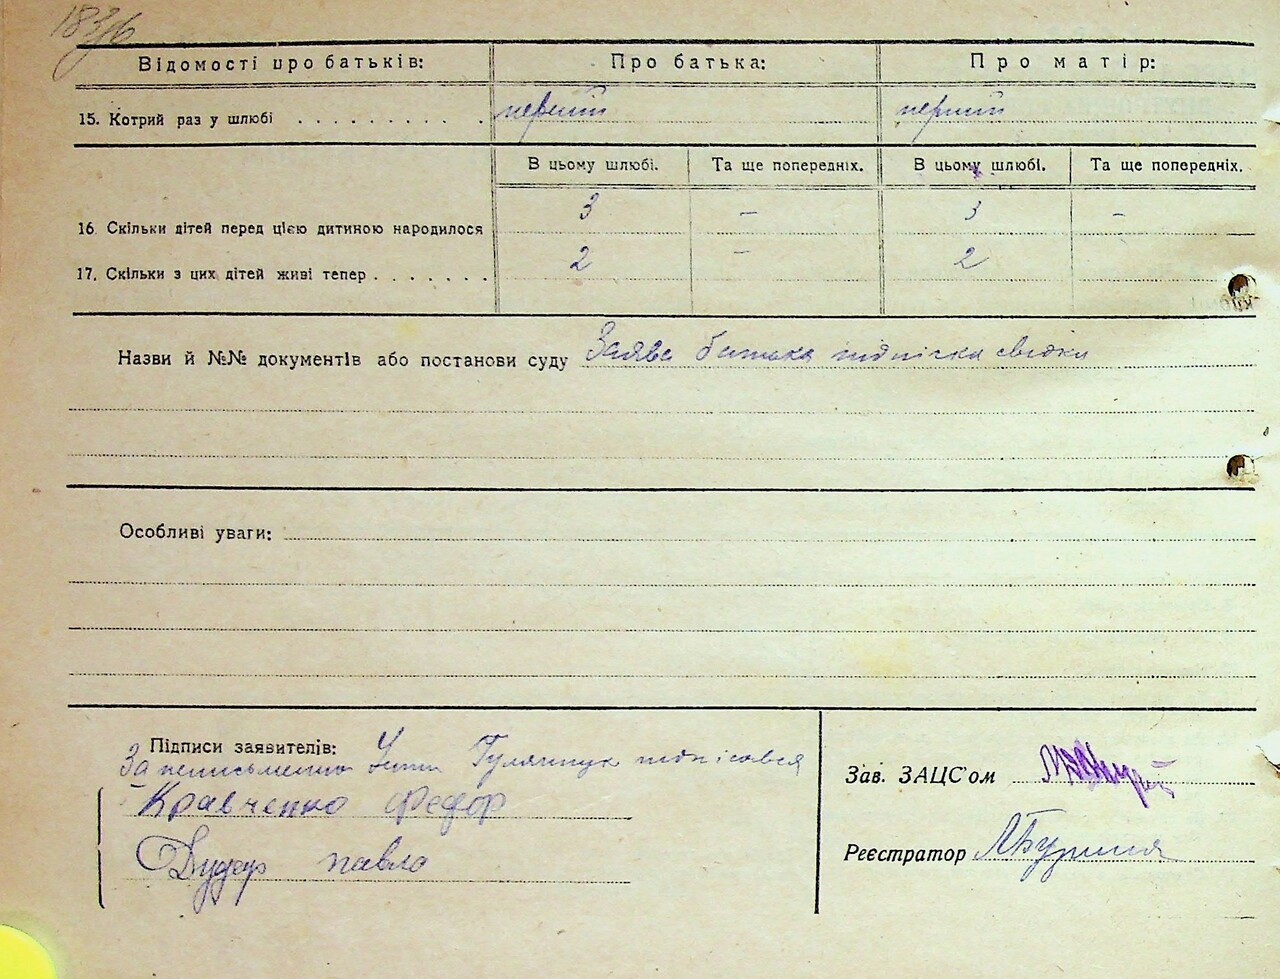 183/6
Відомості про батьків: Про батька: Про матір:
15. Котрий раз у шлюбі . . . . . . . . . . перший перший
В цьому шлюбі. Та ще попередніх. В цьому шлюбі. Та ще попередніх.
16. Скільки дітей перед цією дитиною народилося 3 – 3 –
17. Скільки з цих дітей живі тепер . . . . . . . 2 – 2
Назви й №№ документів або постанови суду Заява батька підпіска свідки
Особливі уваги:
Підписи заявителів:
За неписьменно Гулянчук підпісався
Кравченко Федор
Дудар павло
Зав. ЗАЦС'ом
Реєстратор